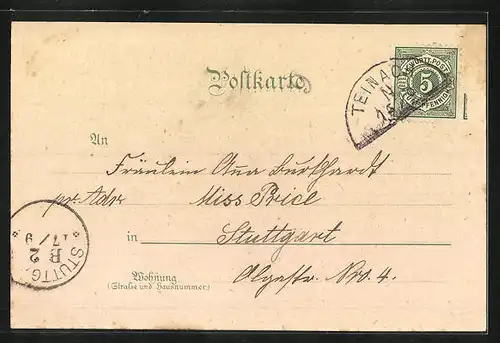 Postkarte
K. WÜRTT. POST
5
FÜNF PFENNIG
TEINACH
An
Fräulein Anna Burkhardt
pr. Adr Miss Price
in Stuttgart
Olgastr. Nro. 4.
Wohnung
(Straße und Hausnummer)
STUTTG.
B 2
17/9